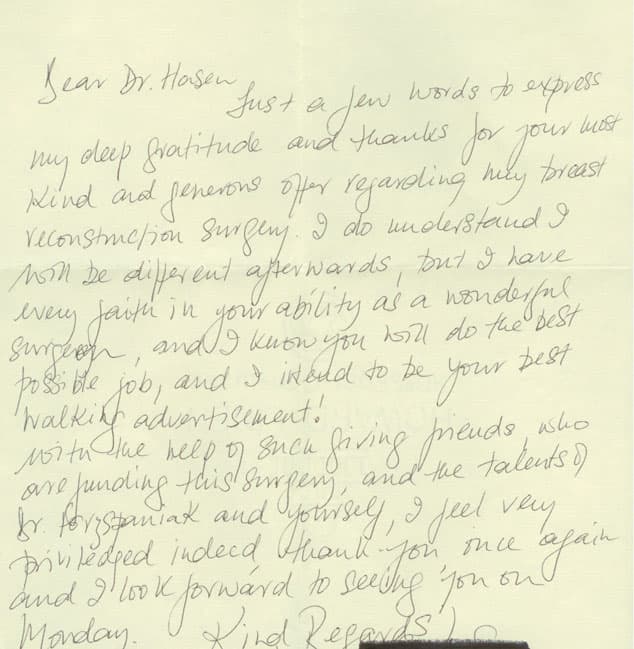 Dear Dr. Hasen
Just a few words to express
my deep gratitude and thanks for your most
kind and generous offer regarding my breast
reconstruction surgery. I do understand I
will be different afterwards, but I have
every faith in your ability as a wonderful
surgeon, and I know you will do the best
possible job, and I intend to be your best
walking advertisement!
With the help of such giving friends, who
are funding this surgery, and the talents of
Dr. and yourself, I feel very
priviledged indeed thank-you once again
and I look forward to seeing you on
Monday. Kind Regards